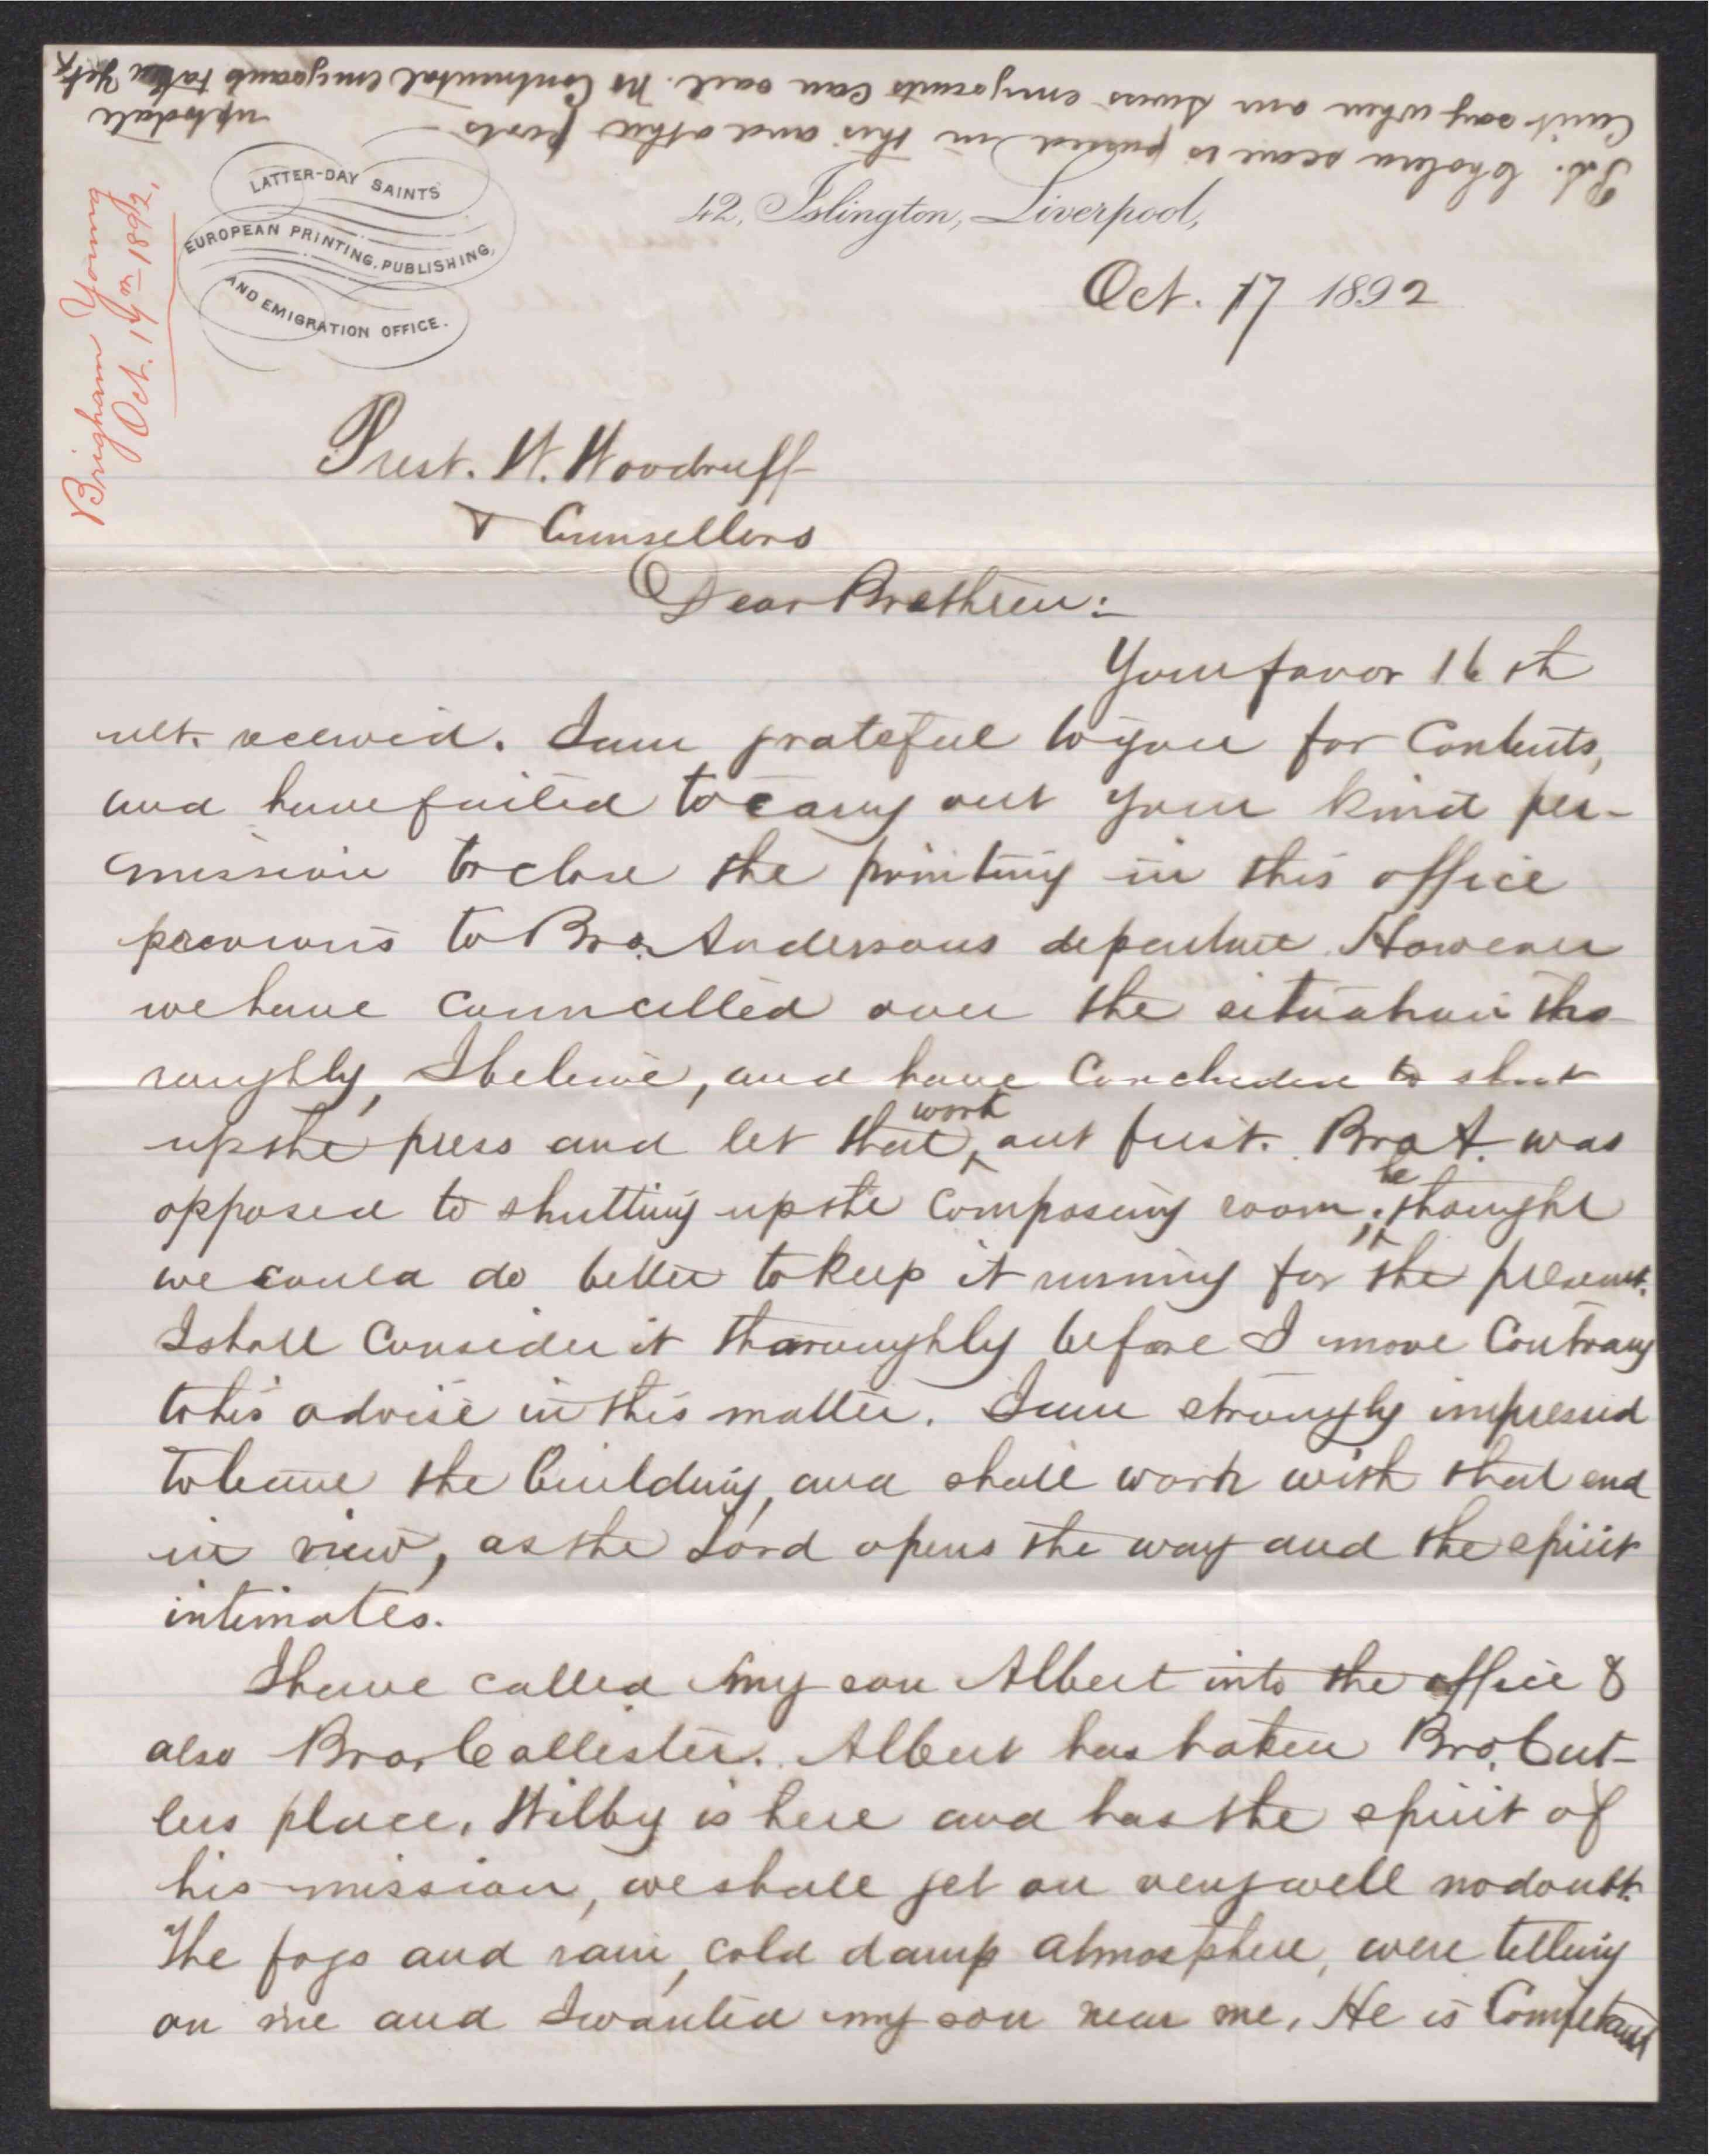 P.S. Cholera scare is pursued in this and other ports
Can't say when our Swiss emigrants can sail. No Continental emigrants taken yet
uptodate
Brigham Young
Oct. 17th 1892.
LATTER-DAY SAINTS
EUROPEAN PRINTING, PUBLISHING,
AND EMIGRATION OFFICE.
42, Islington, Liverpool,
Oct. 17 1892
Prest. W. Woodruff
& Counsellors
Dear Brethren:
Your favor 16th
ult. received. I am grateful to you for Contents,
and have failed to carry out your kind per-
mission to close the printing in this office
previous to Bro. Andersons departure. However
we have councelled over the situation tho-
roughly, I believe, and have Concluded to shut
up the press and let that work out first. Bro A. was
opposed to shutting up the Composing room, he thought
we could do better to keep it running for the present.
I shall Consider it thoroughly before I move Contrary
to his advise in this matter. I am strongly impressed
to leave the building, and shall work with that end
in view, as the Lord opens the way and the spirit
intimates.
I have called my son Albert into the office &
also Bro. Callister. Albert has taken Bro. Cut-
lers place. Wilby is here and has the spirit of
his mission, we shall get on very well no doubt.
The fogs and rain, cold damp atmosphere, were telling
on me and I wanted my son near me. He is Competant